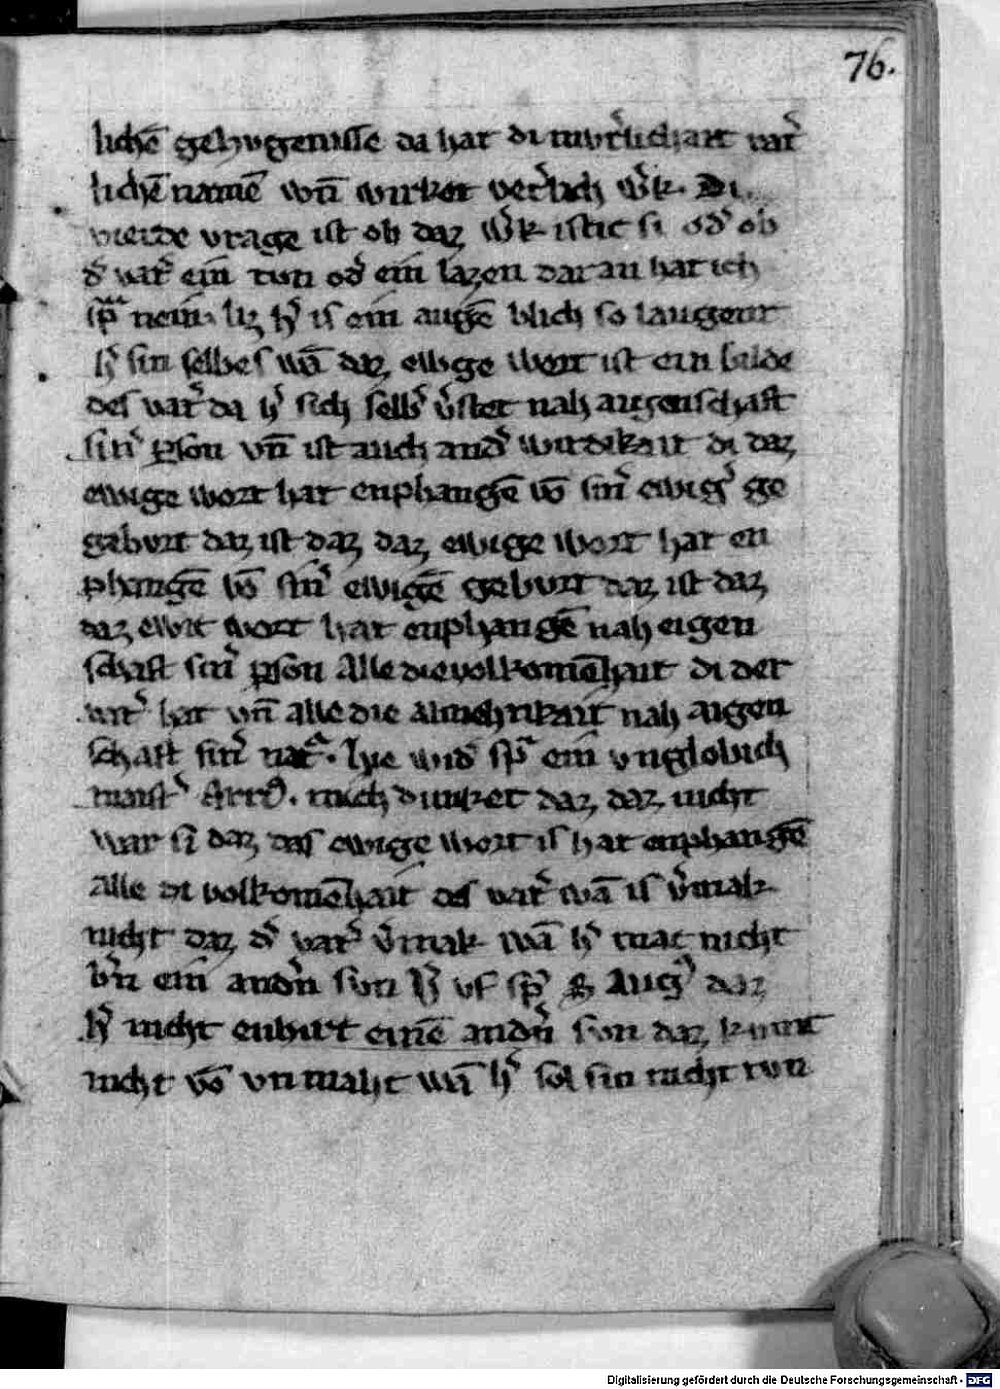 76.
lichē gehvgenisse da hat di nuvͬlichait vatͬ
lichē namē vnͦ wirket vetͬlich wͬk. Di
vierde vrage ist ob daz wͬk istic si odͬ ob
dͬ vatͬ ein tvn odͬ ein lazen daran hat ich
spͣ nein. liz hͬ is ein augē blich so laugent
hͬ sin selbes wā daz ewige wort ist ein bilde
des vatͬ da hͬ sich selbͬ vͬstet nah augenschaft
sinͬ pson vn̄ ist auch andͬ wirdikait di daz
ewige wort hat enphangē vō sinͬ ewigͬ ge
geburt daz ist daz daz ewige wort hat en
phangē vō sinͬ ewigē geburt daz ist daz
daz ewic wort hat enphangē nah eigen
schaft sinͬ pson Alle die volkomēhait di der
vatͬ hat vn̄ alle die almehtikait nah aigen
schaft sinͬ natͣ. hie widͬ spͣ ein vnglobich
maistͬ Arrͦ. mich dunket daz daz nicht
war si daz das ewige wort is hat enphangē
Alle di volkomēhait des vatͬ wā is vͬmak
nicht daz dͬ vatͬ vͬmak wā hͬ mac nicht
bͬn ein andͬn sun hͬ vf spͣ S Augͬ daz
hͬ nicht enbirt einē andͬn son daz kumt
nicht vō vnmaht wā hͬ sol sin nicht tvn
Digitalisierung gefördert durch die Deutsche Forschungsgemeinschaft - DFG